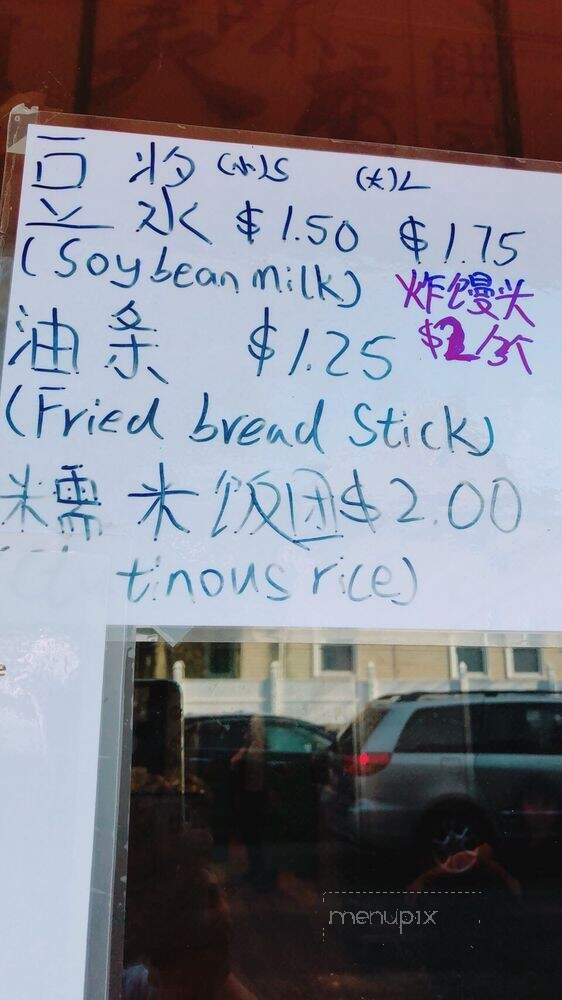 豆浆 (小)S (大)L
$1.50 $1.75
(Soybean milk)
炸馒头
$2/3个
油条 $1.25
(Fried bread Stick)
糯米饭团 $2.00
tinous rice)
menupix